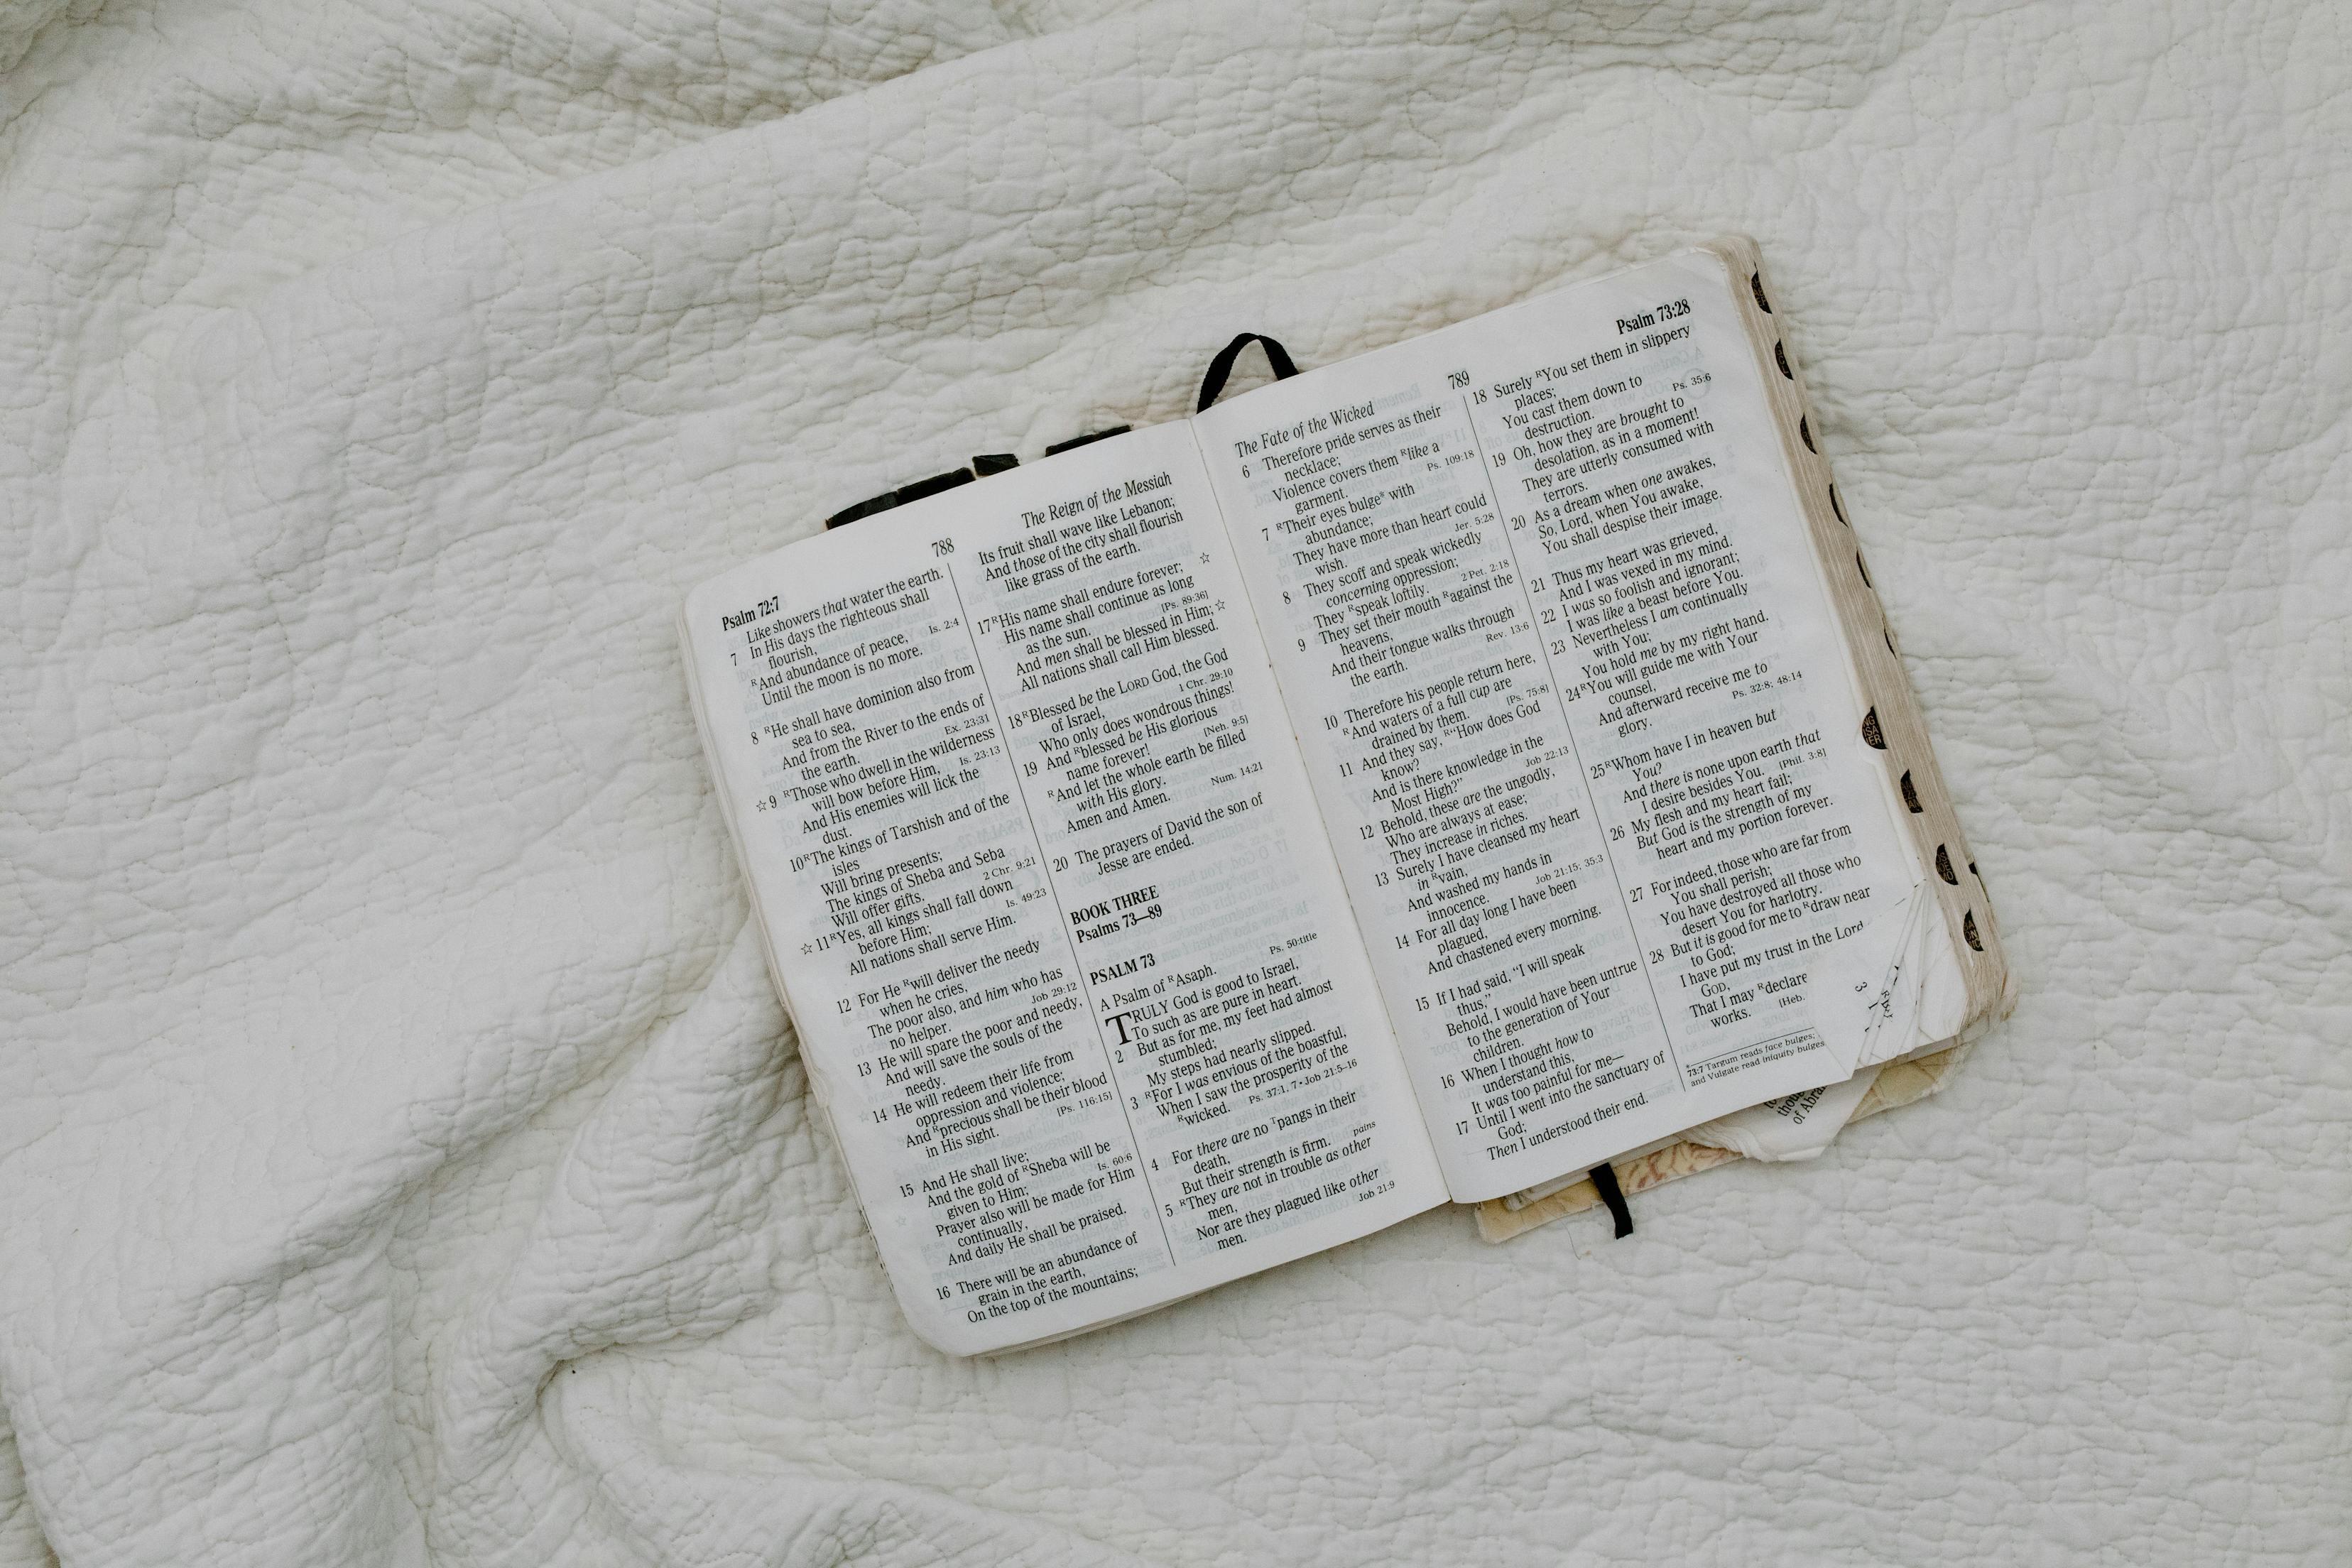 Psalm 72:7
788
The Reign of the Messiah
Like showers that water the earth.
7 In His days the righteous shall
flourish,
Is. 2:4
ᴿAnd abundance of peace,
Until the moon is no more.
8 ᴿHe shall have dominion also from
sea to sea,
And from the River to the ends of
the earth.
Ex. 23:31
☆9 ᴿThose who dwell in the wilderness
will bow before Him,
Is. 23:13
And His enemies will lick the
dust.
10ᴿThe kings of Tarshish and of the
isles
Will bring presents;
The kings of Sheba and Seba
Will offer gifts.
2 Chr. 9:21
☆11ᴿYes, all kings shall fall down
before Him;
Is. 49:23
All nations shall serve Him.
12 For He ᴿwill deliver the needy
when he cries,
The poor also, and him who has
no helper.
Job 29:12
13 He will spare the poor and needy,
And will save the souls of the
needy.
14 He will redeem their life from
oppression and violence;
And ᴿprecious shall be their blood
in His sight.
[Ps. 116:15]
15 And He shall live;
And the gold of ᴿSheba will be
given to Him;
Is. 60:6
Prayer also will be made for Him
continually,
And daily He shall be praised.
16 There will be an abundance of
grain in the earth,
On the top of the mountains;
Its fruit shall wave like Lebanon;
And those of the city shall flourish
like grass of the earth.
17ᴿHis name shall endure forever; ☆
His name shall continue as long
as the sun.
[Ps. 89:36]
And men shall be blessed in Him; ☆
All nations shall call Him blessed.
18ᴿBlessed be the LORD God, the God
of Israel,
1 Chr. 29:10
Who only does wondrous things!
19 And ᴿblessed be His glorious
name forever!
[Neh. 9:5]
ᴿAnd let the whole earth be filled
with His glory.
Num. 14:21
Amen and Amen.
20 The prayers of David the son of
Jesse are ended.
BOOK THREE
Psalms 73—89
PSALM 73
Ps. 50:title
A Psalm of ᴿAsaph.
TRULY God is good to Israel,
To such as are pure in heart.
2 But as for me, my feet had almost
stumbled;
My steps had nearly slipped.
3 ᴿFor I was envious of the boastful,
When I saw the prosperity of the
ᴿwicked.
Ps. 37:1, 7 • Job 21:5–16
4 For there are no ᵀpangs in their
death,
pains
But their strength is firm.
5 ᴿThey are not in trouble as other
men,
Nor are they plagued like other
men.
Job 21:9
The Fate of the Wicked
789
Psalm 73:28
6 Therefore pride serves as their
necklace;
Violence covers them ᴿlike a
garment.
Ps. 109:18
7 ᴿTheir eyes bulge* with
abundance;
They have more than heart could
wish.
Jer. 5:28
8 They scoff and speak wickedly
concerning oppression;
They ᴿspeak loftily.
2 Pet. 2:18
9 They set their mouth ᴿagainst the
heavens,
And their tongue walks through
the earth.
Rev. 13:6
10 Therefore his people return here,
ᴿAnd waters of a full cup are
drained by them.
[Ps. 75:8]
11 And they say, ᴿ“How does God
know?
And is there knowledge in the
Most High?”
Job 22:13
12 Behold, these are the ungodly,
Who are always at ease;
They increase in riches.
13 Surely I have cleansed my heart
in ᴿvain,
And washed my hands in
innocence.
Job 21:15; 35:3
14 For all day long I have been
plagued,
And chastened every morning.
15 If I had said, “I will speak
thus,”
Behold, I would have been untrue
to the generation of Your
children.
16 When I thought how to
understand this,
It was too painful for me—
17 Until I went into the sanctuary of
God;
Then I understood their end.
18 Surely ᴿYou set them in slippery
places;
Ps. 35:6
You cast them down to
destruction.
19 Oh, how they are brought to
desolation, as in a moment!
They are utterly consumed with
terrors.
20 As a dream when one awakes,
So, Lord, when You awake,
You shall despise their image.
21 Thus my heart was grieved,
And I was vexed in my mind.
22 I was so foolish and ignorant;
I was like a beast before You.
23 Nevertheless I am continually
with You;
You hold me by my right hand.
24ᴿYou will guide me with Your
counsel,
And afterward receive me to
glory.
Ps. 32:8; 48:14
25ᴿWhom have I in heaven but
You?
And there is none upon earth that
I desire besides You.
[Phil. 3:8]
26 My flesh and my heart fail;
But God is the strength of my
heart and my portion forever.
27 For indeed, those who are far from
You shall perish;
You have destroyed all those who
desert You for harlotry.
28 But it is good for me to ᴿdraw near
to God;
I have put my trust in the Lord
GOD,
That I may ᴿdeclare
works.
[Heb.
*
73:7 Targum reads face bulges;
and Vulgate read iniquity bulges
of Abra